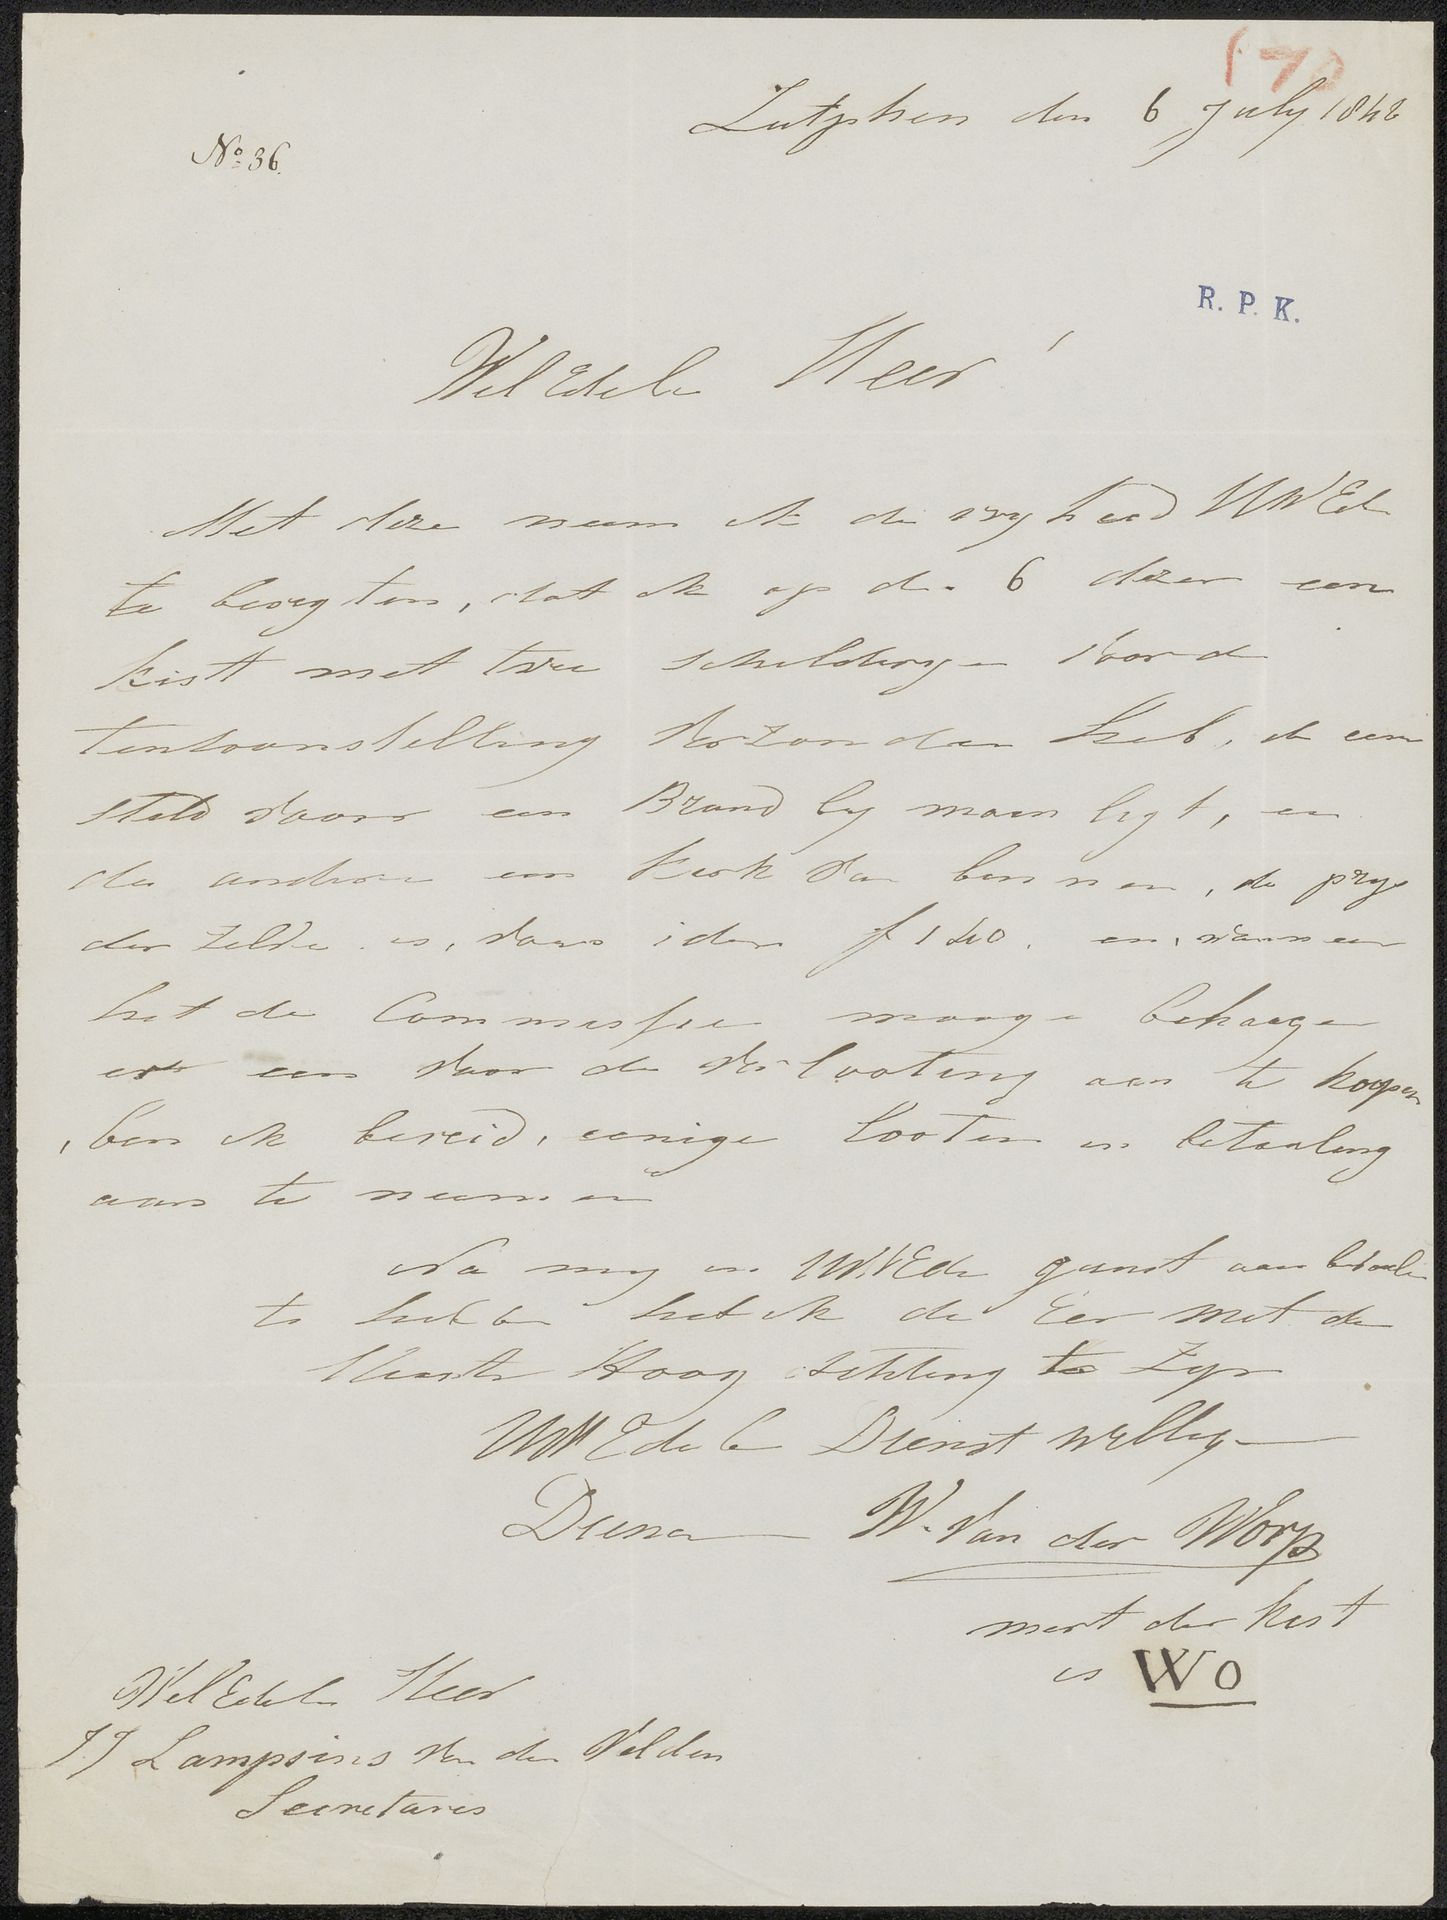 170
Zutphen den 6 July 1846
No 36.
R. P. K.
WelEdele Heer
Met deze neem ik de vryheed UWEd
te berigten, dat ik op de 6 dezer een
kist met twe schilderyen voor de
tentoonstelling verzonden heb, de een
steld voor een Brand by maan ligt, en
de andere een kerk van binnen, de prys
der zelve is, voor ider f 140. en wanneer
het de Commissie mooge behaage
er een voor de verlooting aan te koopen
, ben ik bereid, eenige looten in betaaling
aan te neemen
Na my in UWEde gunst aan bevoolen
te hebben heb ik de Eer met de
Meeste Hoog achting te zyn
UWEdele Dienst willige
Diena W. van der Worp
merk der kist
is WO
WelEdele Heer
JJ Lampsins van den Velden
Secretaris